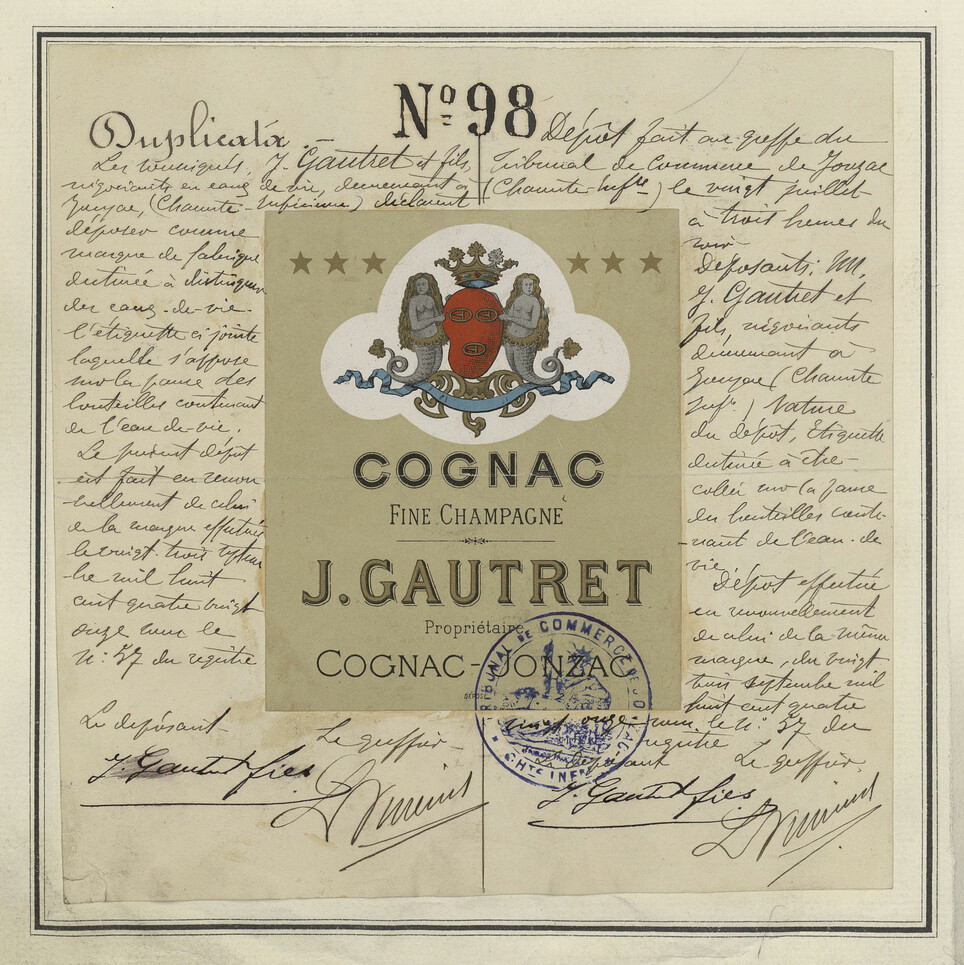 Nº 98
Duplicata
Les soussignés, J. Gautret et fils,
négociants en eaux de vie, demeurant à
Jonzac, (Charente-Inférieure) déclarent
déposer comme
marque de fabrique
destinée à distinguer
des eaux-de-vie
l'étiquette ci jointe
laquelle s'appose
sur la panse des
bouteilles contenant
de l'eau-de-vie.
Le présent dépôt
est fait en renou
vellement de celui
de la marque effectué
le vingt-trois septem
bre mil huit
cent quatre vingt
onze sous le
n: 37 du registre
Le déposant
Le greffier
J. Gautret fies
Dépôt fait au greffe du
Tribunal de Commerce de Jonzac
(Charente-Infre) le vingt juillet
à trois heures du
soir
Déposants: MM.
J. Gautret et
fils, négociants
demeurant à
Jonzac (Charente
Infre) Nature
du dépôt, Etiquette
destinée à être
collée sur la panse
des bouteilles conte-
nant de l'eau-de-
vie
Dépôt effectué
en renouvellement
de celui de la même
marque, du vingt
trois septembre mil
huit cent quatre
vingt onze sous le n: 37 du
registre
Le déposant
Le greffier
J. Gautret fies
COGNAC
FINE CHAMPAGNE
J. GAUTRET
Propriétaire
COGNAC-JONZAC
TRIBUNAL DE COMMERCE DE JONZAC
CHTE INFRE